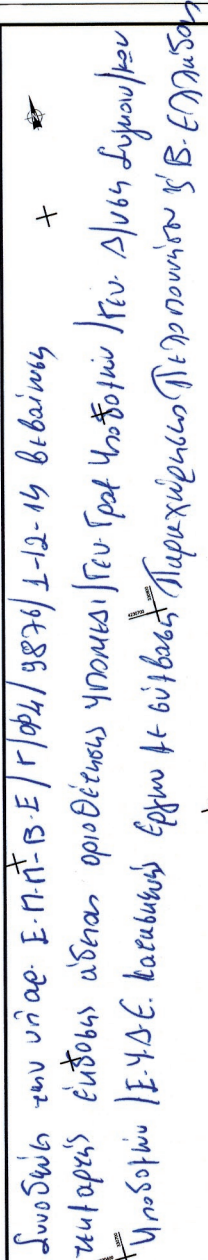 Συνοδεύει την υπ αρ. Ε-Π-Π-Β-Ε/Γ/Φ4/9876/1-12-14 βεβαίωση
τεκμαρτής έκδοσης άδειας οριοθέτησης ΥΠΟΜΕΔΙ/Γεν. Γραμ Υποδομών/Γεν. Δ/νση Συγκοιν/κών
Υποδομών/Ε.Υ.Δ.Ε. Κατασκευής Έργων με σύμβαση Παραχώρησης Πελοποννήσου & Β-Ελλάδας